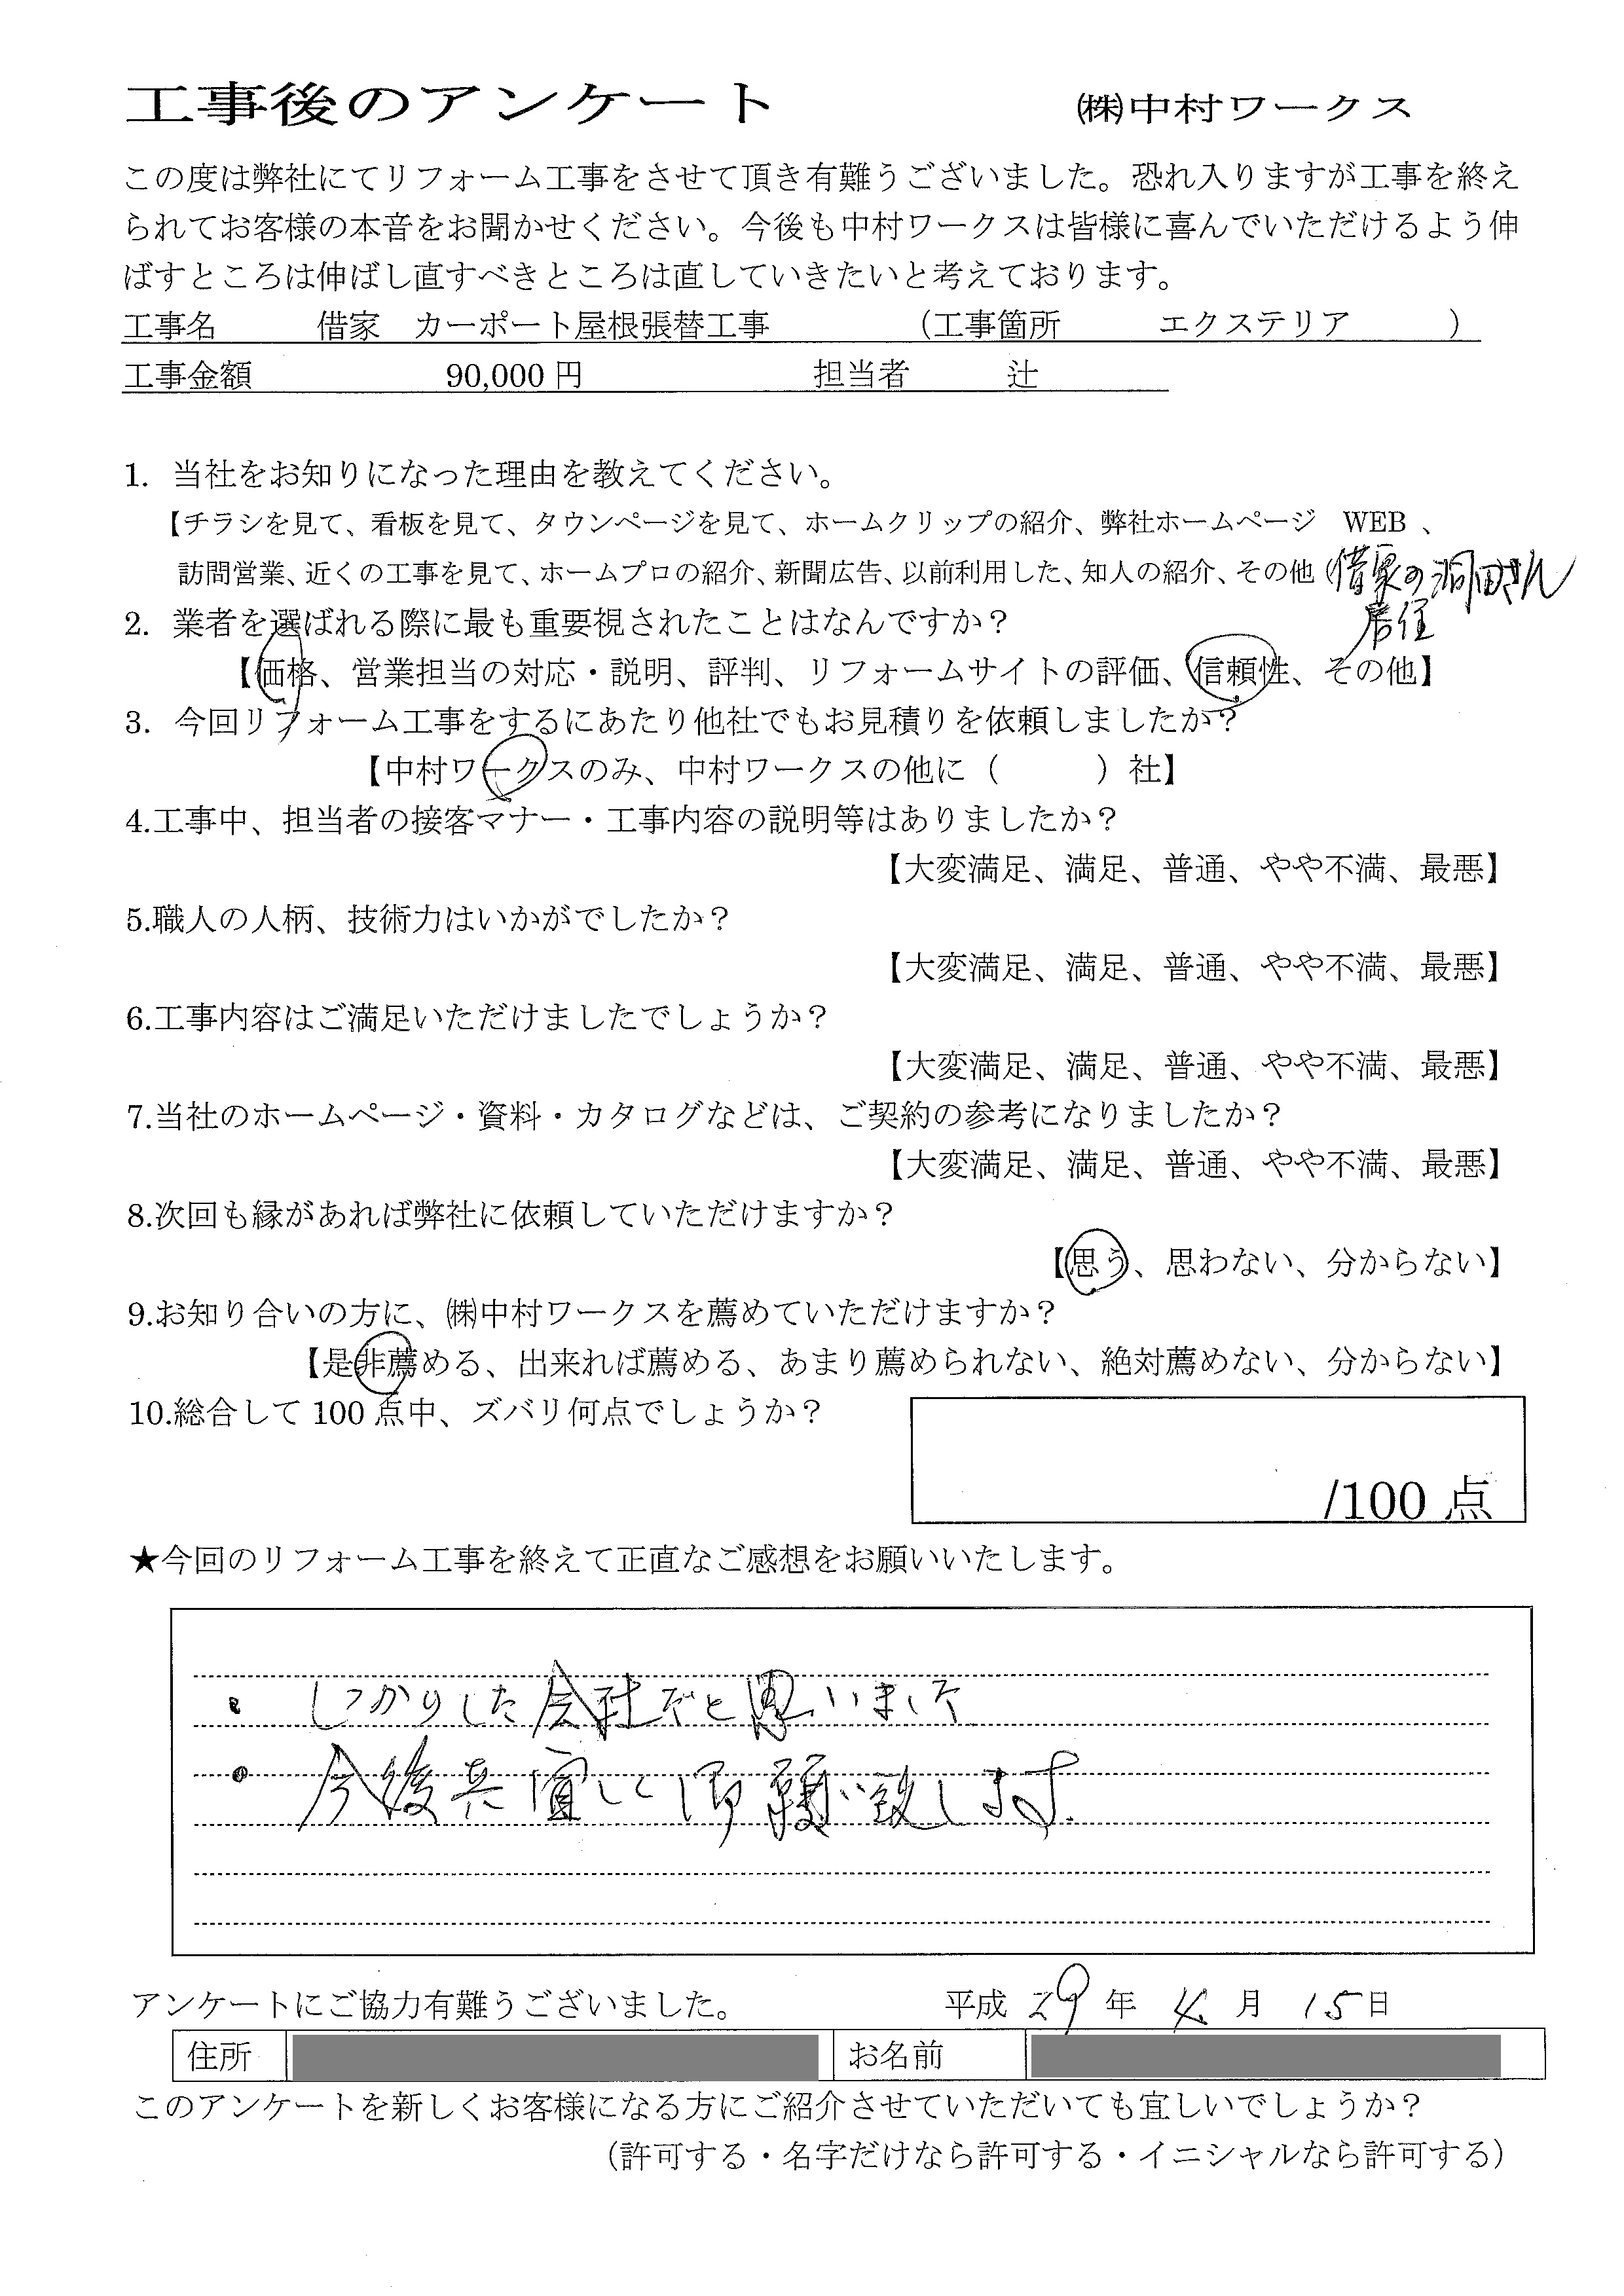 工事後のアンケート ㈱中村ワークス
この度は弊社にてリフォーム工事をさせて頂き有難うございました。恐れ入りますが工事を終え
られてお客様の本音をお聞かせください。今後も中村ワークスは皆様に喜んでいただけるよう伸
ばすところは伸ばし直すべきところは直していきたいと考えております。
工事名 借家 カーポート屋根張替工事 （工事箇所 エクステリア ）
工事金額 90,000 円 担当者 辻
1. 当社をお知りになった理由を教えてください。
【チラシを見て、看板を見て、タウンページを見て、ホームクリップの紹介、弊社ホームページ WEB 、
訪問営業、近くの工事を見て、ホームプロの紹介、新聞広告、以前利用した、知人の紹介、その他（借家の洞田さん
居住
2. 業者を選ばれる際に最も重要視されたことはなんですか？
【価格、営業担当の対応・説明、評判、リフォームサイトの評価、信頼性、その他】
3. 今回リフォーム工事をするにあたり他社でもお見積りを依頼しましたか？
【中村ワークスのみ、中村ワークスの他に（ ）社】
4.工事中、担当者の接客マナー・工事内容の説明等はありましたか？
【大変満足、満足、普通、やや不満、最悪】
5.職人の人柄、技術力はいかがでしたか？
【大変満足、満足、普通、やや不満、最悪】
6.工事内容はご満足いただけましたでしょうか？
【大変満足、満足、普通、やや不満、最悪】
7.当社のホームページ・資料・カタログなどは、ご契約の参考になりましたか？
【大変満足、満足、普通、やや不満、最悪】
8.次回も縁があれば弊社に依頼していただけますか？
【思う、思わない、分からない】
9.お知り合いの方に、㈱中村ワークスを薦めていただけますか？
【是非薦める、出来れば薦める、あまり薦められない、絶対薦めない、分からない】
10.総合して 100 点中、ズバリ何点でしょうか？
/100 点
★今回のリフォーム工事を終えて正直なご感想をお願いいたします。
・ しっかりした会社だと思いました
・ 今後共宜しく御願い致します.
アンケートにご協力有難うございました。 平成 29 年 4 月 15 日
住所 お名前
このアンケートを新しくお客様になる方にご紹介させていただいても宜しいでしょうか？
（許可する・名字だけなら許可する・イニシャルなら許可する）